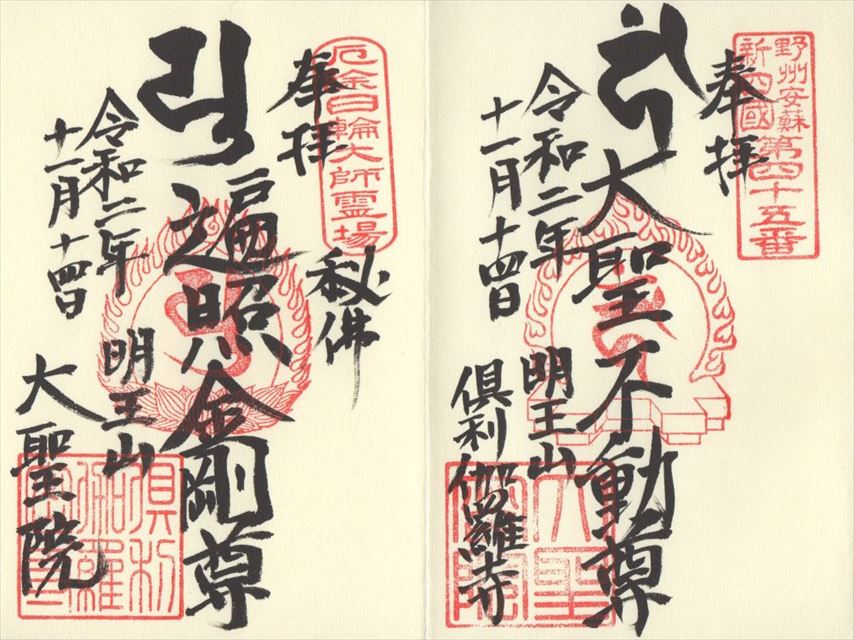 野州安蘇
新四國第四十五番
奉拝
大聖不動尊
令和二年
十一月十四日
明王山
倶利伽羅寺
大聖
院
厄除日輪大師霊場
奉拝
秘佛
遍照金剛尊
令和二年
十一月十四日
明王山
大聖院
倶利
伽羅